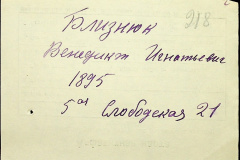 218-
Близнюк
Венедикт Игнатьевич
1895
5ая Слободская 21